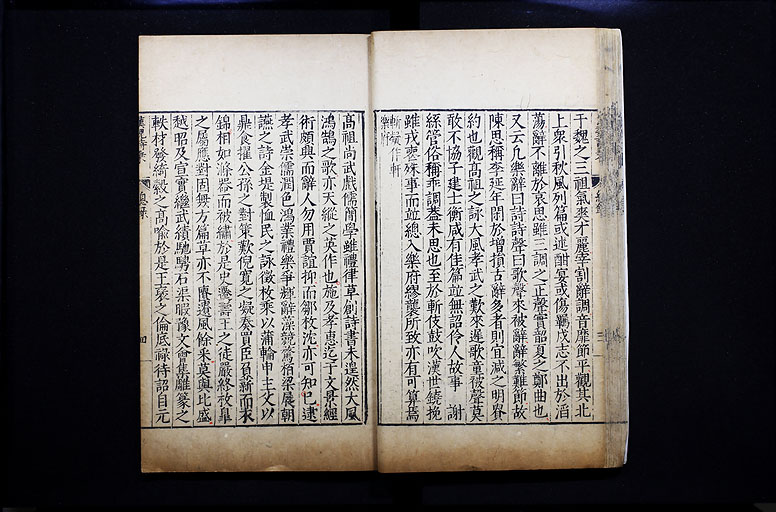 于魏之三祖氣爽才麗宰割辭調音靡節平觀其北
上衆引秋風列篇或述酣宴或傷羈戍志不出於滔
蕩辭不離於哀思雖三調之正聲實韶夏之鄭曲也
又云凡樂辭曰詩詩聲曰歌聲來被辭辭繁難節故
陳思稱李延年閑於增損古辭多者則宜減之明貴
約也觀高祖之詠大風孝武之歎來遲歌童被聲莫
敢不協子建士衡咸有佳篇並無詔伶人故事 謝
絲管俗稱乖調蓋未思也至於斬伎鼓吹漢世鐃挽
雖戎喪殊事而並總入樂府繆襲所致亦有可算焉
斬疑作軒
樂府
高祖尚武戲儒簡學雖禮律草創詩書未遑然大風
鴻鵠之歌亦天縱之英作也施及孝惠迄于文景經
術頗興而辭人勿用賈誼抑而鄒枚沈亦可知巳逮
孝武崇儒潤色鴻業禮樂爭輝辭藻競騖柏梁展朝
讌之詩金堤製恤民之詠徵枚乘以蒲輪申主父以
鼎食擢公孫之對策歎倪寬之疑奏買臣負薪而衣
錦相如滌器而被繡於是史遷壽王之徒嚴終枚皐
之屬應對固無方篇章亦不匱遺風餘采莫與比盛
越昭及宣實繼武績馳騁石渠暇豫文會集雕篆之
軼材發綺縠之高喻於是王褒之倫底祿待詔自元
四